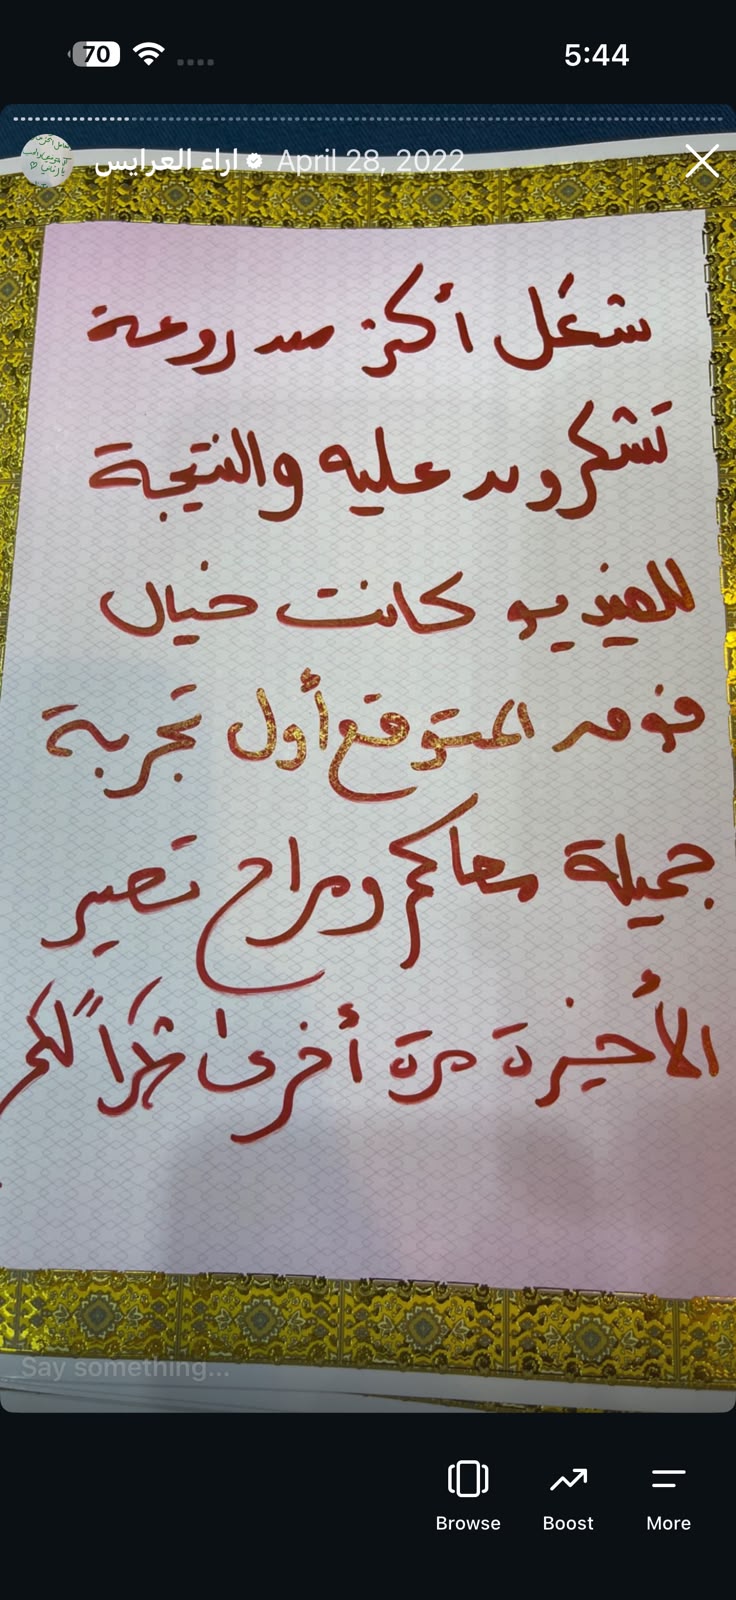 70
5:44
اراء العرايس April 28, 2022
شغل أكثر من روعة
تشكرون عليه والنتيجة
للفيديو كانت خيال
فوق المتوقع أول تجربة
جميلة معاكم ومراح تصير
الأخيرة مرة أخرى شكراً لكم
Say something...
Browse Boost More